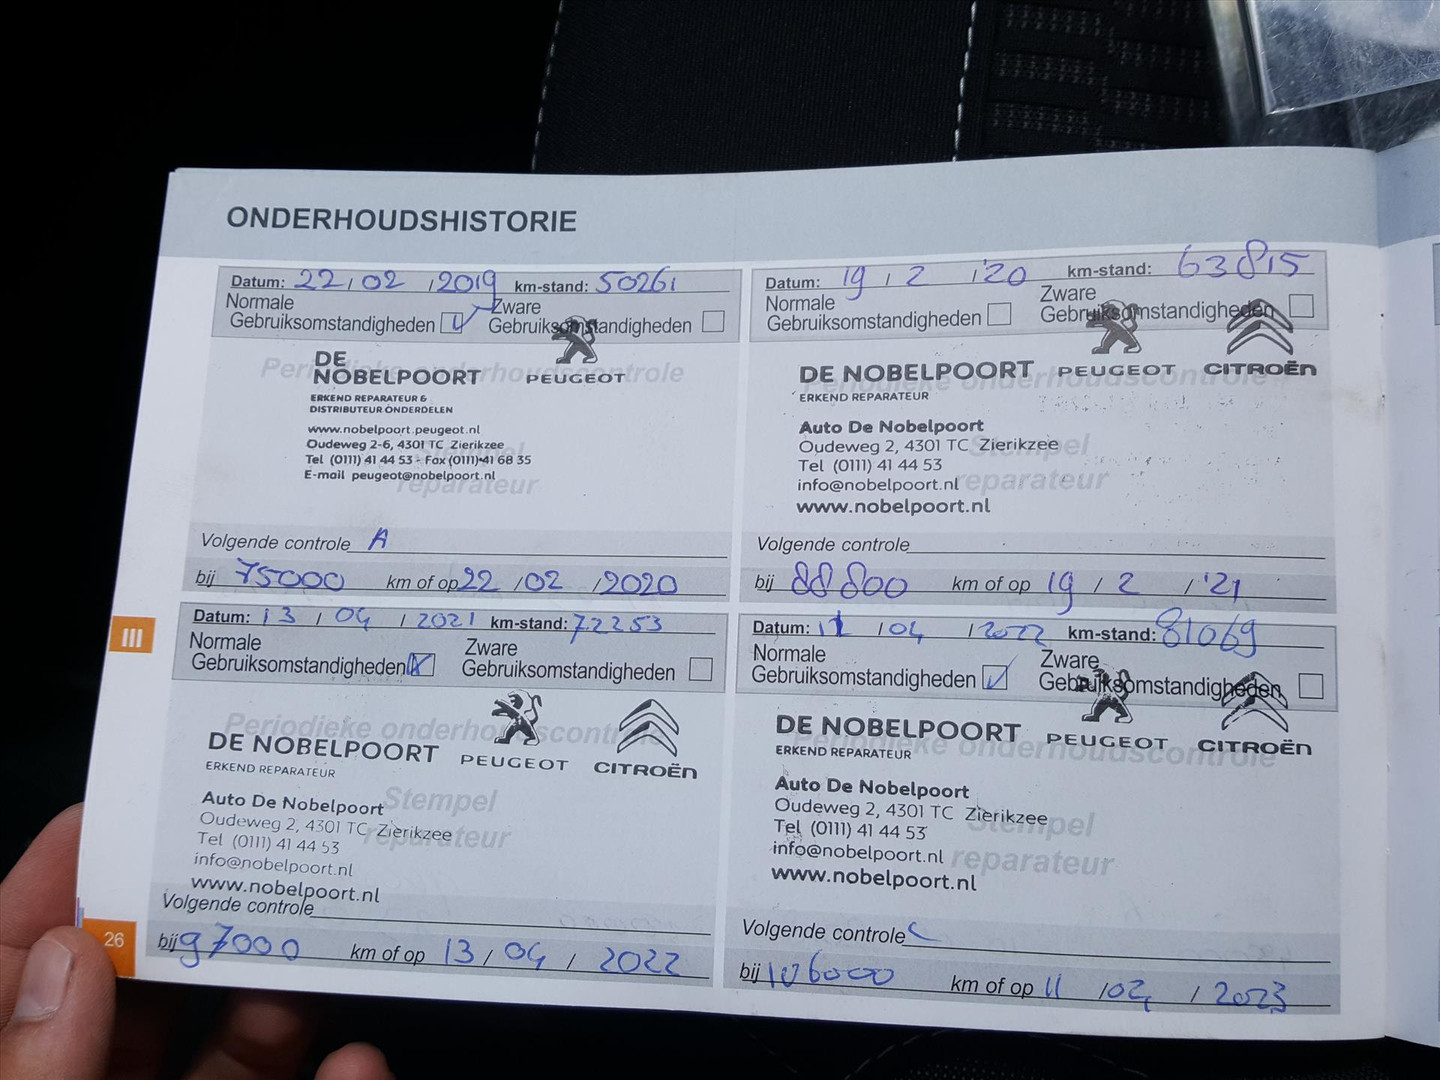 ONDERHOUDSHISTORIE
Datum: 22 / 02 / 2019 km-stand: 50261
Normale
Gebruiksomstandigheden
Zware
Gebruiksomstandigheden
Periodieke onderhoudscontrole
DE
NOBELPOORT
PEUGEOT
ERKEND REPARATEUR &
DISTRIBUTEUR ONDERDELEN
www.nobelpoort.peugeot.nl
Oudeweg 2-6, 4301 TC Zierikzee
Tel (0111) 41 44 53 - Fax (0111)-41 68 35
E-mail peugeot@nobelpoort.nl
Stempel
reparateur
Volgende controle A
bij 75000 km of op 22 / 02 / 2020
Datum: 19 / 2 / '20 km-stand: 63815
Normale
Gebruiksomstandigheden
Zware
Gebruiksomstandigheden
Periodieke onderhoudscontrole
DE NOBELPOORT PEUGEOT CITROËN
ERKEND REPARATEUR
Auto De Nobelpoort
Oudeweg 2, 4301 TC Zierikzee
Tel (0111) 41 44 53
info@nobelpoort.nl
www.nobelpoort.nl
Stempel
reparateur
Volgende controle
bij 88800 km of op 19 / 2 / '21
III
Datum: 13 / 04 / 2021 km-stand: 72253
Normale
Gebruiksomstandigheden
Zware
Gebruiksomstandigheden
Periodieke onderhoudscontrole
DE NOBELPOORT PEUGEOT CITROËN
ERKEND REPARATEUR
Auto De Nobelpoort
Oudeweg 2, 4301 TC Zierikzee
Tel (0111) 41 44 53
info@nobelpoort.nl
www.nobelpoort.nl
Stempel
reparateur
Volgende controle
bij 97000 km of op 13 / 04 / 2022
Datum: 11 / 04 / 2022 km-stand: 81069
Normale
Gebruiksomstandigheden
Zware
Gebruiksomstandigheden
Periodieke onderhoudscontrole
DE NOBELPOORT PEUGEOT CITROËN
ERKEND REPARATEUR
Auto De Nobelpoort
Oudeweg 2, 4301 TC Zierikzee
Tel (0111) 41 44 53
info@nobelpoort.nl
www.nobelpoort.nl
Stempel
reparateur
Volgende controle C
bij 106000 km of op 11 / 04 / 2023
26